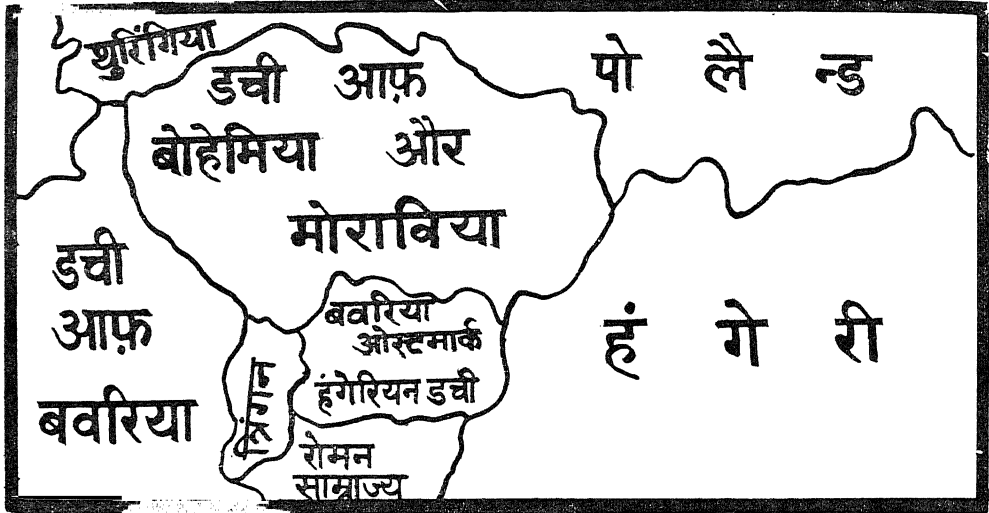 थुरिंगिया
डची आफ़
बोहेमिया और
मोराविया
पोलैन्ड
डची
आफ़
बवरिया
बवरिया
ओस्टमार्क
हंगेरियन डची
रोमन
साम्राज्य
हंगेरी